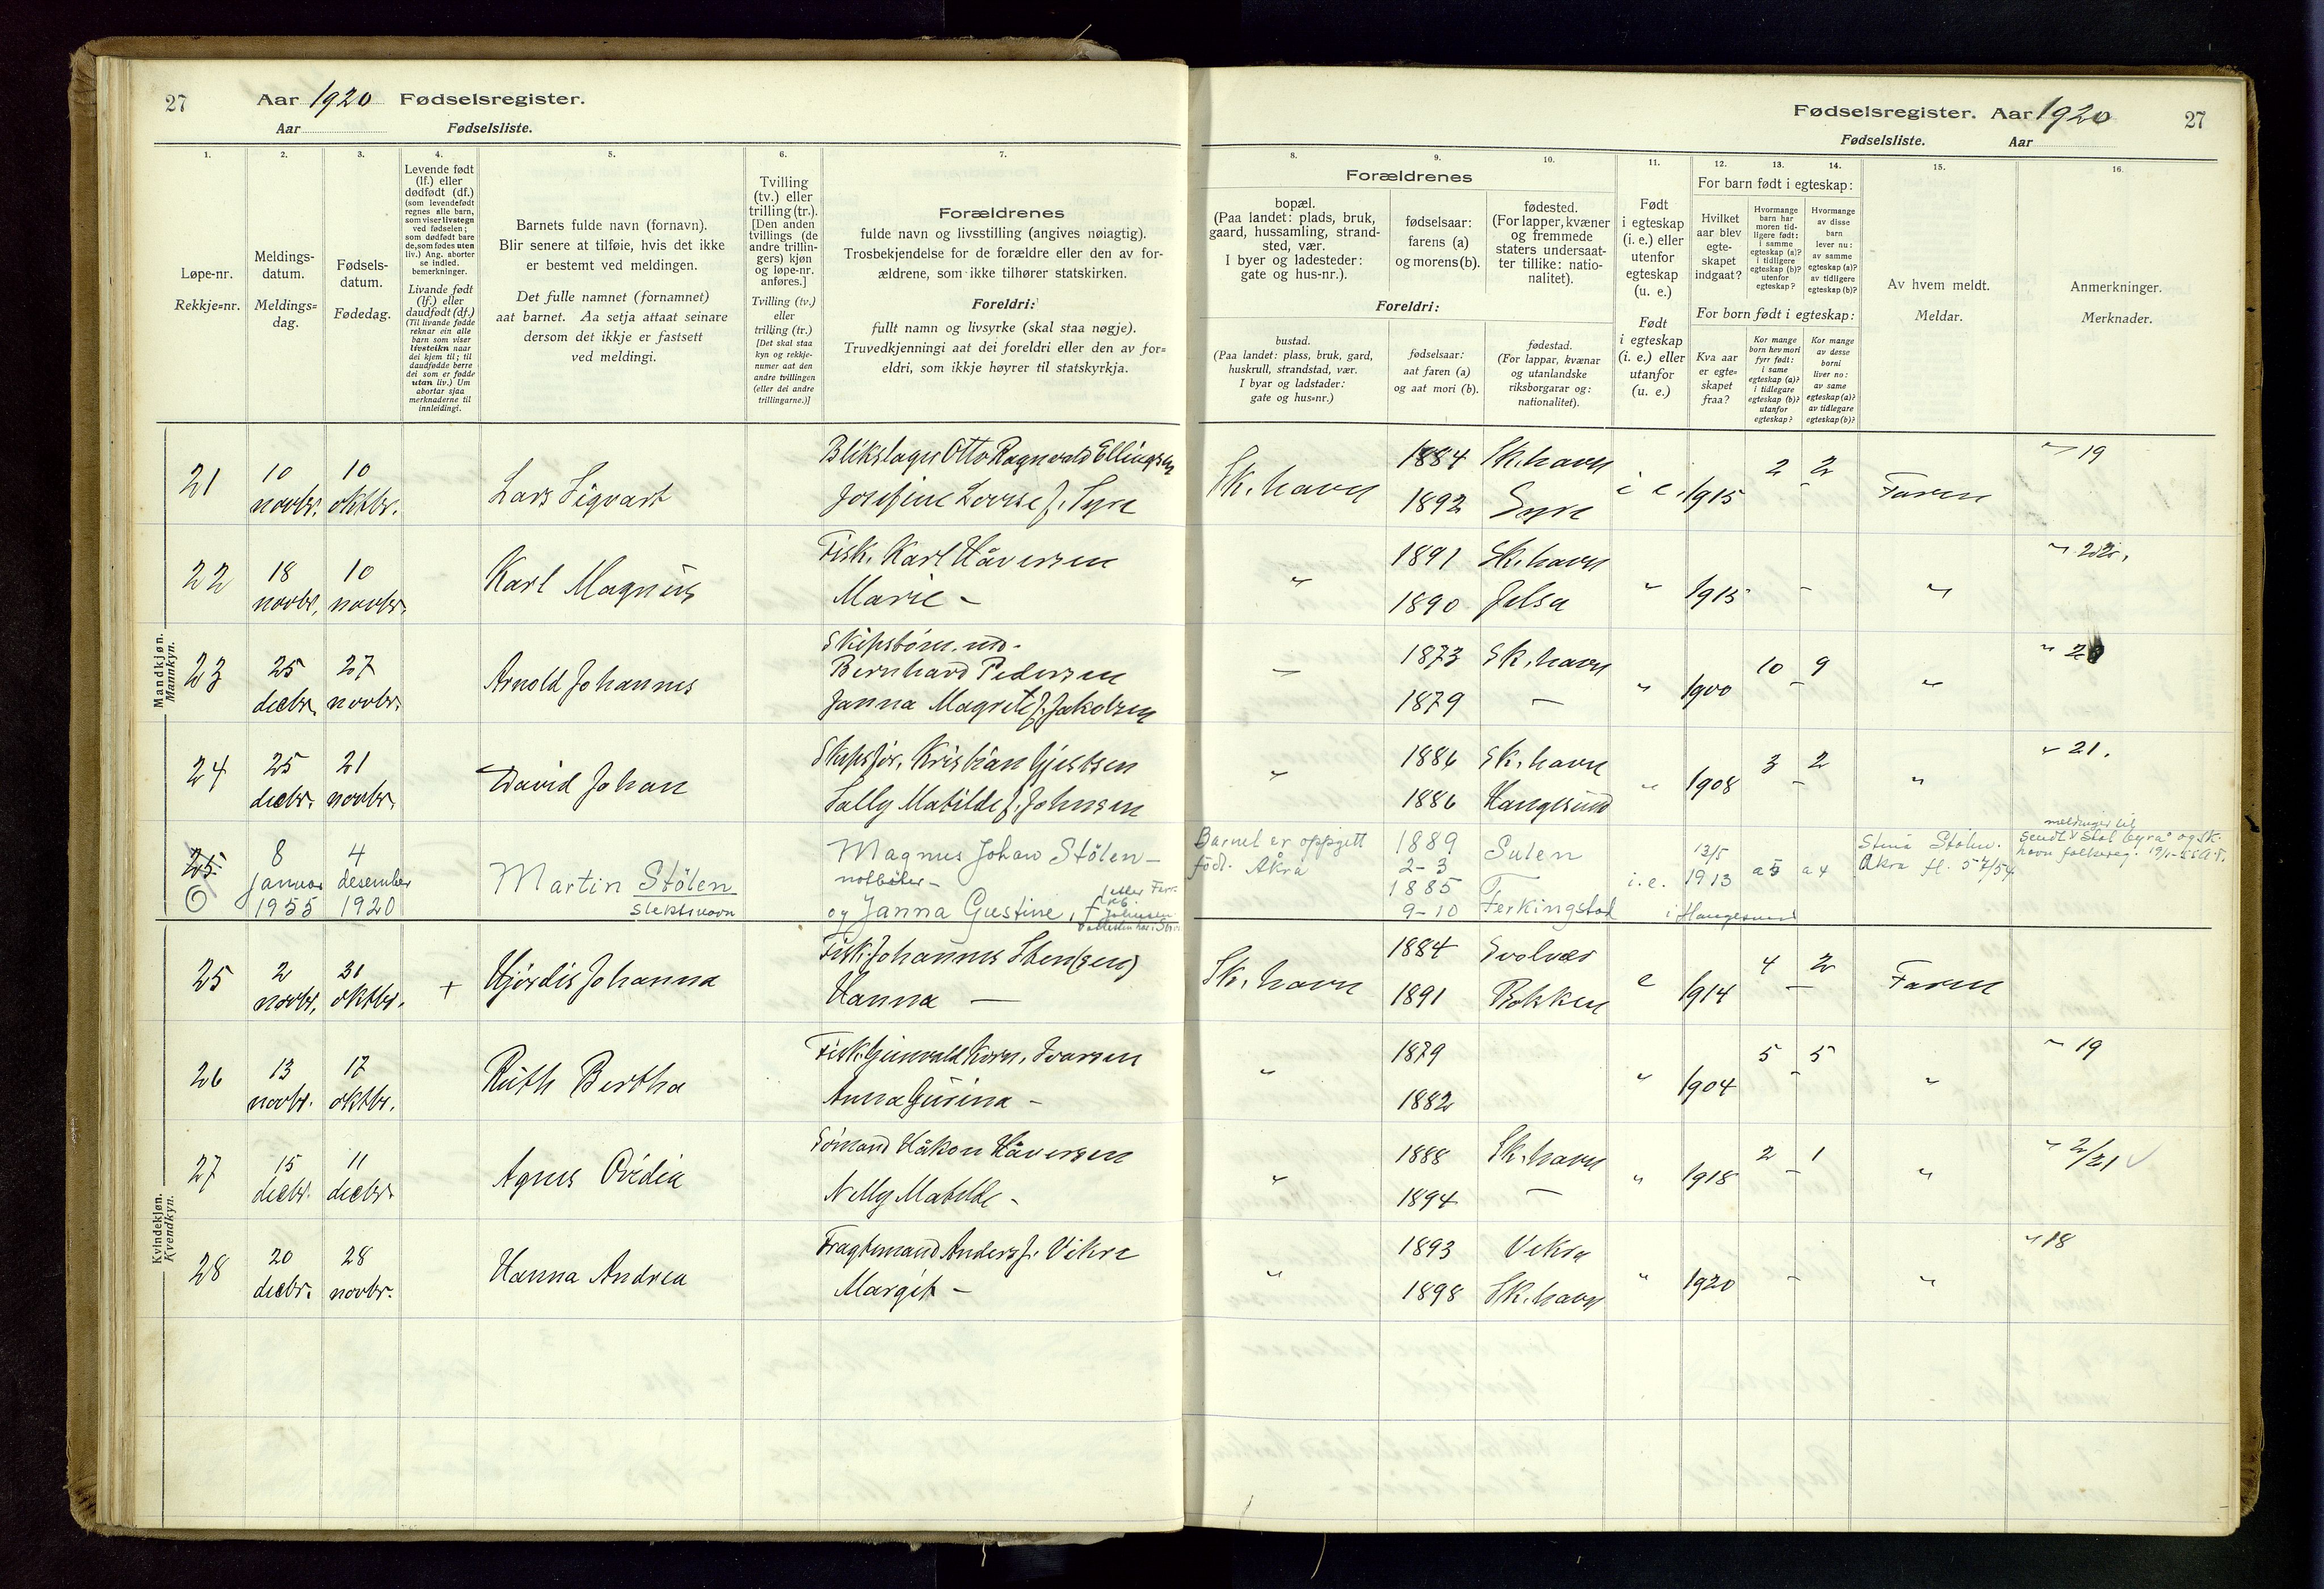 27
Aar 1920 Fødselsregister.
Aar Fødselsliste.
1.
2.
3.
4.
5.
6.
7.
Løpe-nr.
Rekkje=nr.
Meldings-
datum.
Meldings=
dag.
Fødsels-
datum.
Fødedag.
Levende født
(lf.) eller
dødfødt (df.)
(som levendefødt
regnes alle barn,
som viser livstegn
ved fødselen;
som dødfødt bare
de, som fødes uten
liv.) Ang. aborter
se indled.
bemerkninger.
Livande født
(lf.) eller
daudfødt (df.)
(Til livande fødde
reknar ein alle
barn som viser
livsteikn naar
dei kjem til; til
daudfødde berre
dei som er fødde
utan liv.) Um
abortar sjaa
merknaderne til
innleidingi.
Barnets fulde navn (fornavn).
Blir senere at tilføie, hvis det ikke
er bestemt ved meldingen.
Det fulle namnet (fornamnet)
aat barnet. Aa setja attaat seinare
dersom det ikkje er fastsett
ved meldingi.
Tvilling
(tv.) eller
trilling (tr.).
[Den anden
tvillings (de
andre trillin-
gers) kjøn
og løpe-nr.
anføres.]
Tvilling (tv.)
eller
trilling (tr.)
[Det skal staa
kyn og rekkje-
numer aat den
andre tvillingen
(eller dei andre
trillingarne.)]
Forældrenes
fulde navn og livsstilling (angives nøiagtig).
Trosbekjendelse for de forældre eller den av for-
ældrene, som ikke tilhører statskirken.
Foreldri:
fullt namn og livsyrke (skal staa nøgje).
Truvedkjenningi aat dei foreldri eller den av for=
eldri, som ikkje høyrer til statskyrkja.
Mandkjøn.
Mannkyn.
21 10 novbr. 10 oktbr. Lars Sigvart
Blikslager Otto Ragnvald Ellingsen
Josefine Lovise f. Syre
22 18 novbr. 10 novbr. Karl Magnus
Fisk. Karl Håversen
Marie –
23 25 decbr. 27 novbr. Arnold Johannes
Bernhard Pedersen
Janna Magrete f. Jakobsen
24 25 decbr. 21 novbr. David Johan
Skipsfør. Kristian Gjertsen
Sally Matilde f. Johnsen
25. 8 januar 1955 4 desember 1920 Martin Stölen
slektsnavn
Magnus Johan Stölen –
notbøter –
og Janna Gustine, f.
Kvindekjøn.
Kvendkyn.
25 2 novbr. 31 oktbr. + Hjördis Johanna
Fisk. Johannes Sten(sen)
Hanna –
26 13 novbr. 17 oktbr. Ruth Bertha
Fisk. Gunvald Korn. Ivarsen
Anna Gurina –
27 15 decbr. 11 decbr. Agnes Ovidia
Sömand Håkon Håversen
Nelly Matilde –
28 20 decbr. 28 novbr. Hanna Andrea
Fragtemand Anders J. Vikre
Margit –
Fødselsregister. Aar 1920
27
Fødselsliste. Aar
8.
9.
10.
11.
12.
13.
14.
15.
16.
Forældrenes
bopæl.
(Paa landet: plads, bruk,
gaard, hussamling, strand-
sted, vær.
I byer og ladesteder:
gate og hus-nr.).
fødselsaar:
farens (a)
og morens (b).
fødested.
(For lapper, kvæner
og fremmede
staters undersaat-
ter tillike: natio-
nalitet).
Foreldri:
bustad.
(Paa landet: plass, bruk, gard,
huskrull, strandstad, vær.
I byar og ladstader:
gate og hus=nr.)
fødselsaar:
aat faren (a)
og aat mori (b).
fødestad.
(For lappar, kvænar
og utanlandske
riksborgarar og:
nationalitet).
Født
i egteskap
(i. e.) eller
utenfor
egteskap
(u. e.)
Født
i egteskap
(i. e.) eller
utanfor
(u. e.)
For barn født i egteskap:
Hvilket
aar blev
egte-
skapet
indgaat?
Hvormange
barn har
moren tid-
ligere født:
i samme
egteskap (a)?
i tidligere
egteskap (b)?
utenfor
egteskap?
Hvormange
av disse
barn
lever nu:
av samme
egteskap (a)?
av tidligere
egteskap (b)?
For born født i egteskap:
Kva aar
er egte=
skapet
fraa?
Kor mange
born hev mori
fyrr født:
i same
egteskap (a)?
i tidlegare
egteskap (b)?
utanfor
egteskap?
Kor mange
av desse
borni
liver no:
av same
egteskap (a)?
av tidlegare
egteskap (b)?
Av hvem meldt.
Meldar.
Anmerkninger.
Merknader.
Sk. havn 1884 Sk. havn i e. 1915 2 – 2 Faren " 19
1892 Syre
" 1891 Sk. havn " 1915 – " " 22.
1890 Jelsa
– 1873 Sk. havn " 1900 10 – 9 "
1879 –
" 1886 Sk. havn " 1908 3 – 2 " " 21.
1886 Haugesund
Barnet er oppgitt
født. Åkra
1889
2–3
Sulen
1885
9–10
Ferkingstad
i. e.
13/5
1913
i Haugesund
a 5 a 4
Stina Stölen.
Åkra
meldinger til
Sk. havn 1884 Svolvær e 1914 4 – 2 Faren
1891 Bokken
" 1879 " 1904 5 – 5 " " 19
1882
" 1888 Sk. havn " 1918 2 – 1 " " 2/21
1894 –
" 1893 Vikra " 1920 – " " 18
1898 Sk. havn